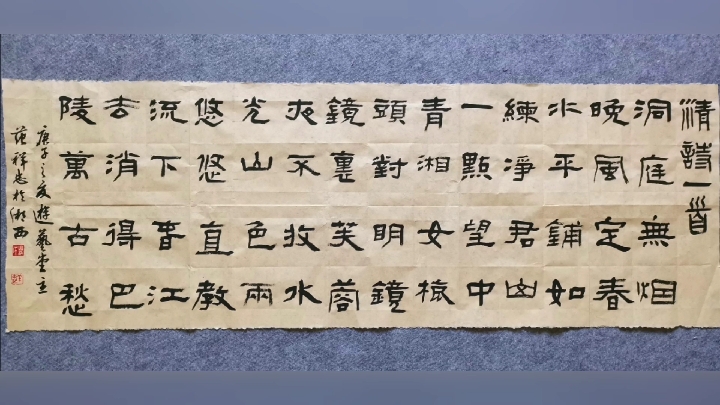 清詩一首
洞庭無烟
晚風定春
水平鋪如
練淨君山
一點望中
青湘女梳
頭對明鏡
鏡裏芙蓉
夜不收水
光山色兩
悠悠直教
流下春江
去消得巴
陵萬古愁
庚子之夏遊藝堂主
祥忠於湘西